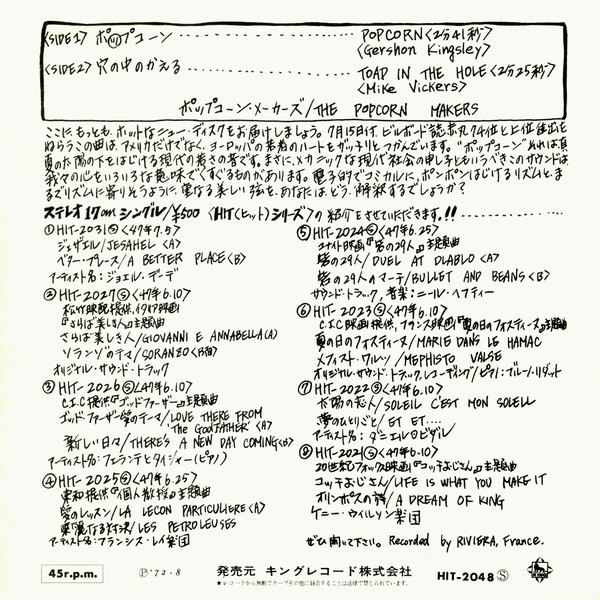 〈SIDE1〉 ポップコーン ‥‥‥‥ POPCORN〈2分41秒〉
〈Gershon Kingsley〉
〈SIDE2〉 穴の中のかえる ‥‥‥‥ TOAD IN THE HOLE〈2分25秒〉
〈Mike Vickers〉
ポップコーン・メーカーズ/THE POPCORN MAKERS
ここに、もっとも、ホットなニュー・ディスクをお届けしましょう。7月15日付、ビルボード誌赤丸74位と上位進出を
ねらうこの曲は、アメリカだけでなく、ヨーロッパの若者のハートをガッチリとつかんでいます。"ポップコーン"それは真
夏の太陽の下をはじける現代の若さの音です。まさに、メカニックな現代社会の申し子ともいうべきこのサウンドは
我々の心をいろいろな意味でくすぐるものがあります。電子的でコミカルに、ポンポンはじけるリズムと、ま
るでリズムに寄りそうように、重なる美しい弦を、あなたは、どう、解釈するでしょうか?
ステレオ17cmシングル/¥500 〈HIT(ヒット)シリーズ〉の紹介をさせていただきます。!!
①HIT-2031Ⓢ〈47年7.5〉
ジェザエル/JESAHEL〈A〉
ベター・プレース/A BETTER PLACE〈B〉
アーティスト名:ジョエル・デーデ
②HIT-2027Ⓢ〈47年6.10〉
松竹映配提供、イタリア映画
『さらば美しき人』主題曲
さらば美しき人/GIOVANNI E ANNABELLA(A)
ソランゾのテーマ/SORANZO〈B面〉
オリジナル・サウンド・トラック
③HIT-2026Ⓢ〈47年6.10〉
C.I.C提供『ゴッドファーザー』主題曲
ゴッドファーザー愛のテーマ/LOVE THERE FROM
'The GODFATHER'〈A〉
新しい日々/THERE'S A NEW DAY COMING〈B〉
アーティスト名:フェランテとタイシャー(ピアノ)
④HIT-2025Ⓢ〈47年6.25〉
東和提供『個人教授』主題曲
愛のレッスン/LA LECON PARTICULIERE〈A〉
華麗なる対決/LES PETROLEUSES
アーティスト名:フランシス・レイ楽団
⑤HIT-2024Ⓢ〈47年6.25〉
ユナイト映画『砦の29人』主題曲
砦の29人/DUEL AT DIABLO〈A〉
砦の29人のマーチ/BULLET AND BEANS〈B〉
サウンド・トラック、音楽:ニール・ヘフティー
⑥HIT-2023Ⓢ〈47年6.10〉
C.I.C映画提供、フランス映画『真夏の日のフォスティーヌ』主題曲
真夏の日のフォスティーヌ/MARIE DANS LE HAMAC
メフィスト・ワルツ/MEPHISTO VALSE
オリジナル・サウンド・トラック、レコーディング/ピアノ:ブルーノ・リダット
⑦HIT-2022Ⓢ〈47年6.10〉
太陽の恋人/SOLEIL C'EST MON SOLEIL
夢のひとりごと/ET ET....
アーティスト名:ダニエル・ビダル
⑧HIT-2021Ⓢ〈47年6.10〉
20世紀フォックス映画『コッチおじさん』主題曲
コッチおじさん/LIFE IS WHAT YOU MAKE IT
オリンポスの詩/A DREAM OF KING
ケニー・ウィルソン楽団
ぜひ聞いて下さい。Recorded by RIVIERA, France.
45r.p.m. Ⓟ'72・8 発売元 キングレコード株式会社 HIT-2048Ⓢ
★レコードから無断でテープその他に録音することは法律で禁じられています。